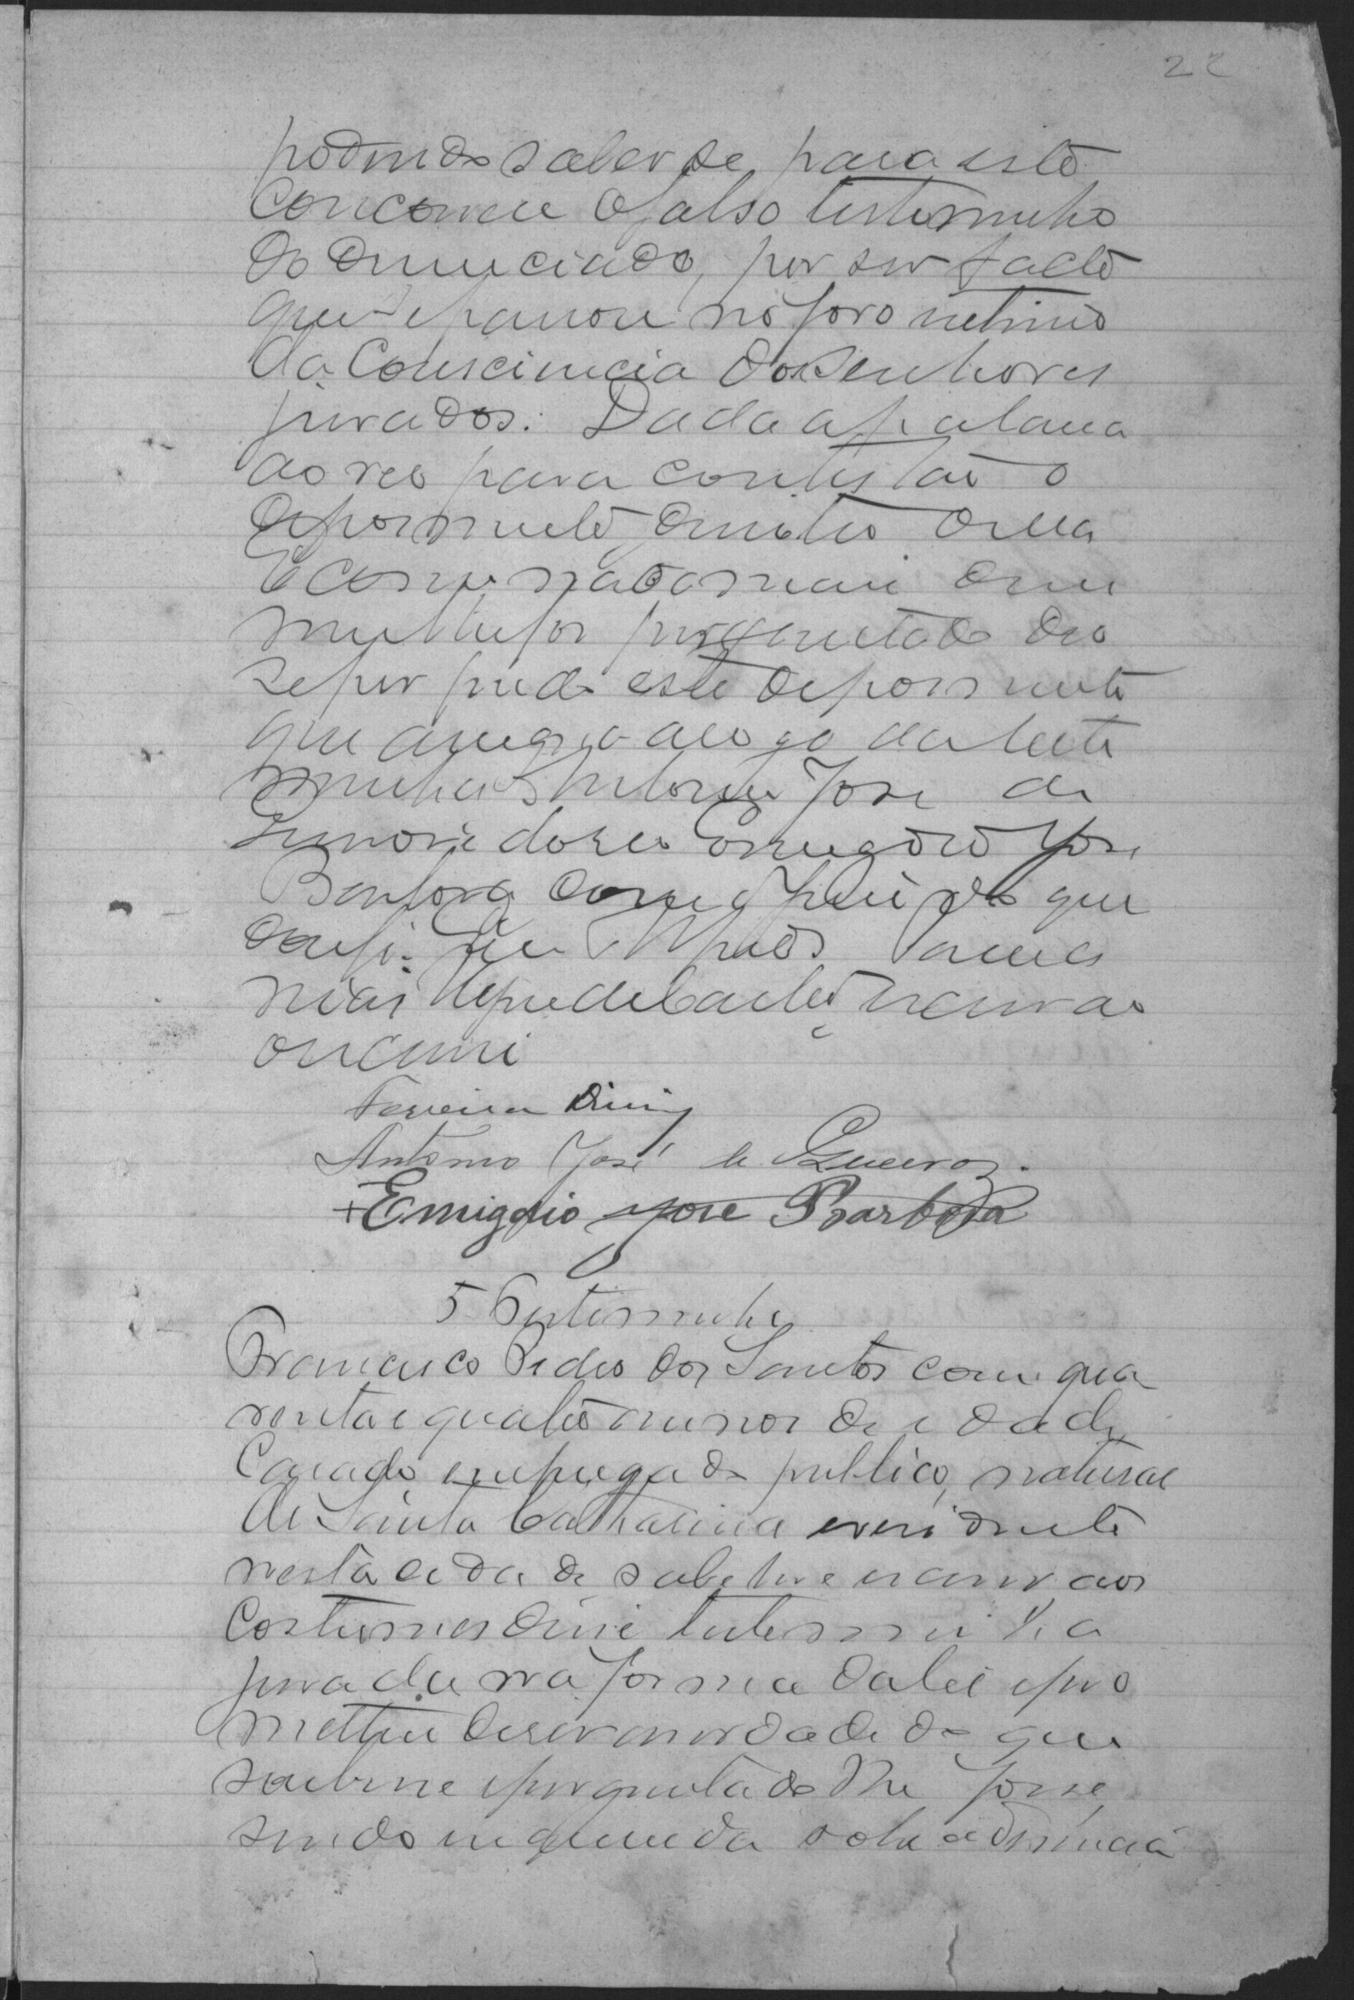 22
podendo saber se para isto
concorreu o falso testemunho
do denunciado, por ser facto
que se passou no foro intimo
da Consciencia dos Senhores
jurados. Dada a palavra
ao reo para contestar o
depoimento
E como nada mais disse
nem lhe foi perguntado deu
se por findo este depoimento
que assigna a rogo da teste
munha Antonio José de
o reo Emygdio José
Barbosa com o Juiz do que
dou fé. Eu
escrivão
escrevi
Ferreira Diniz
Antonio José de Queiroz.
+ Emigdio Jose Barbosa
5 Testemunha
Francisco Pedro dos Santos com qua
renta e quatro annos de idade
Casado, empregado publico, natural
de Santa Catharina e residente
nesta cidade sabe ler e escrever aos
costumes disse testemunha
jurada na forma da lei e pro
metteu dizer a verdade do que
soubesse e perguntado lhe fosse,
sendo inquerida sobre a denuncia